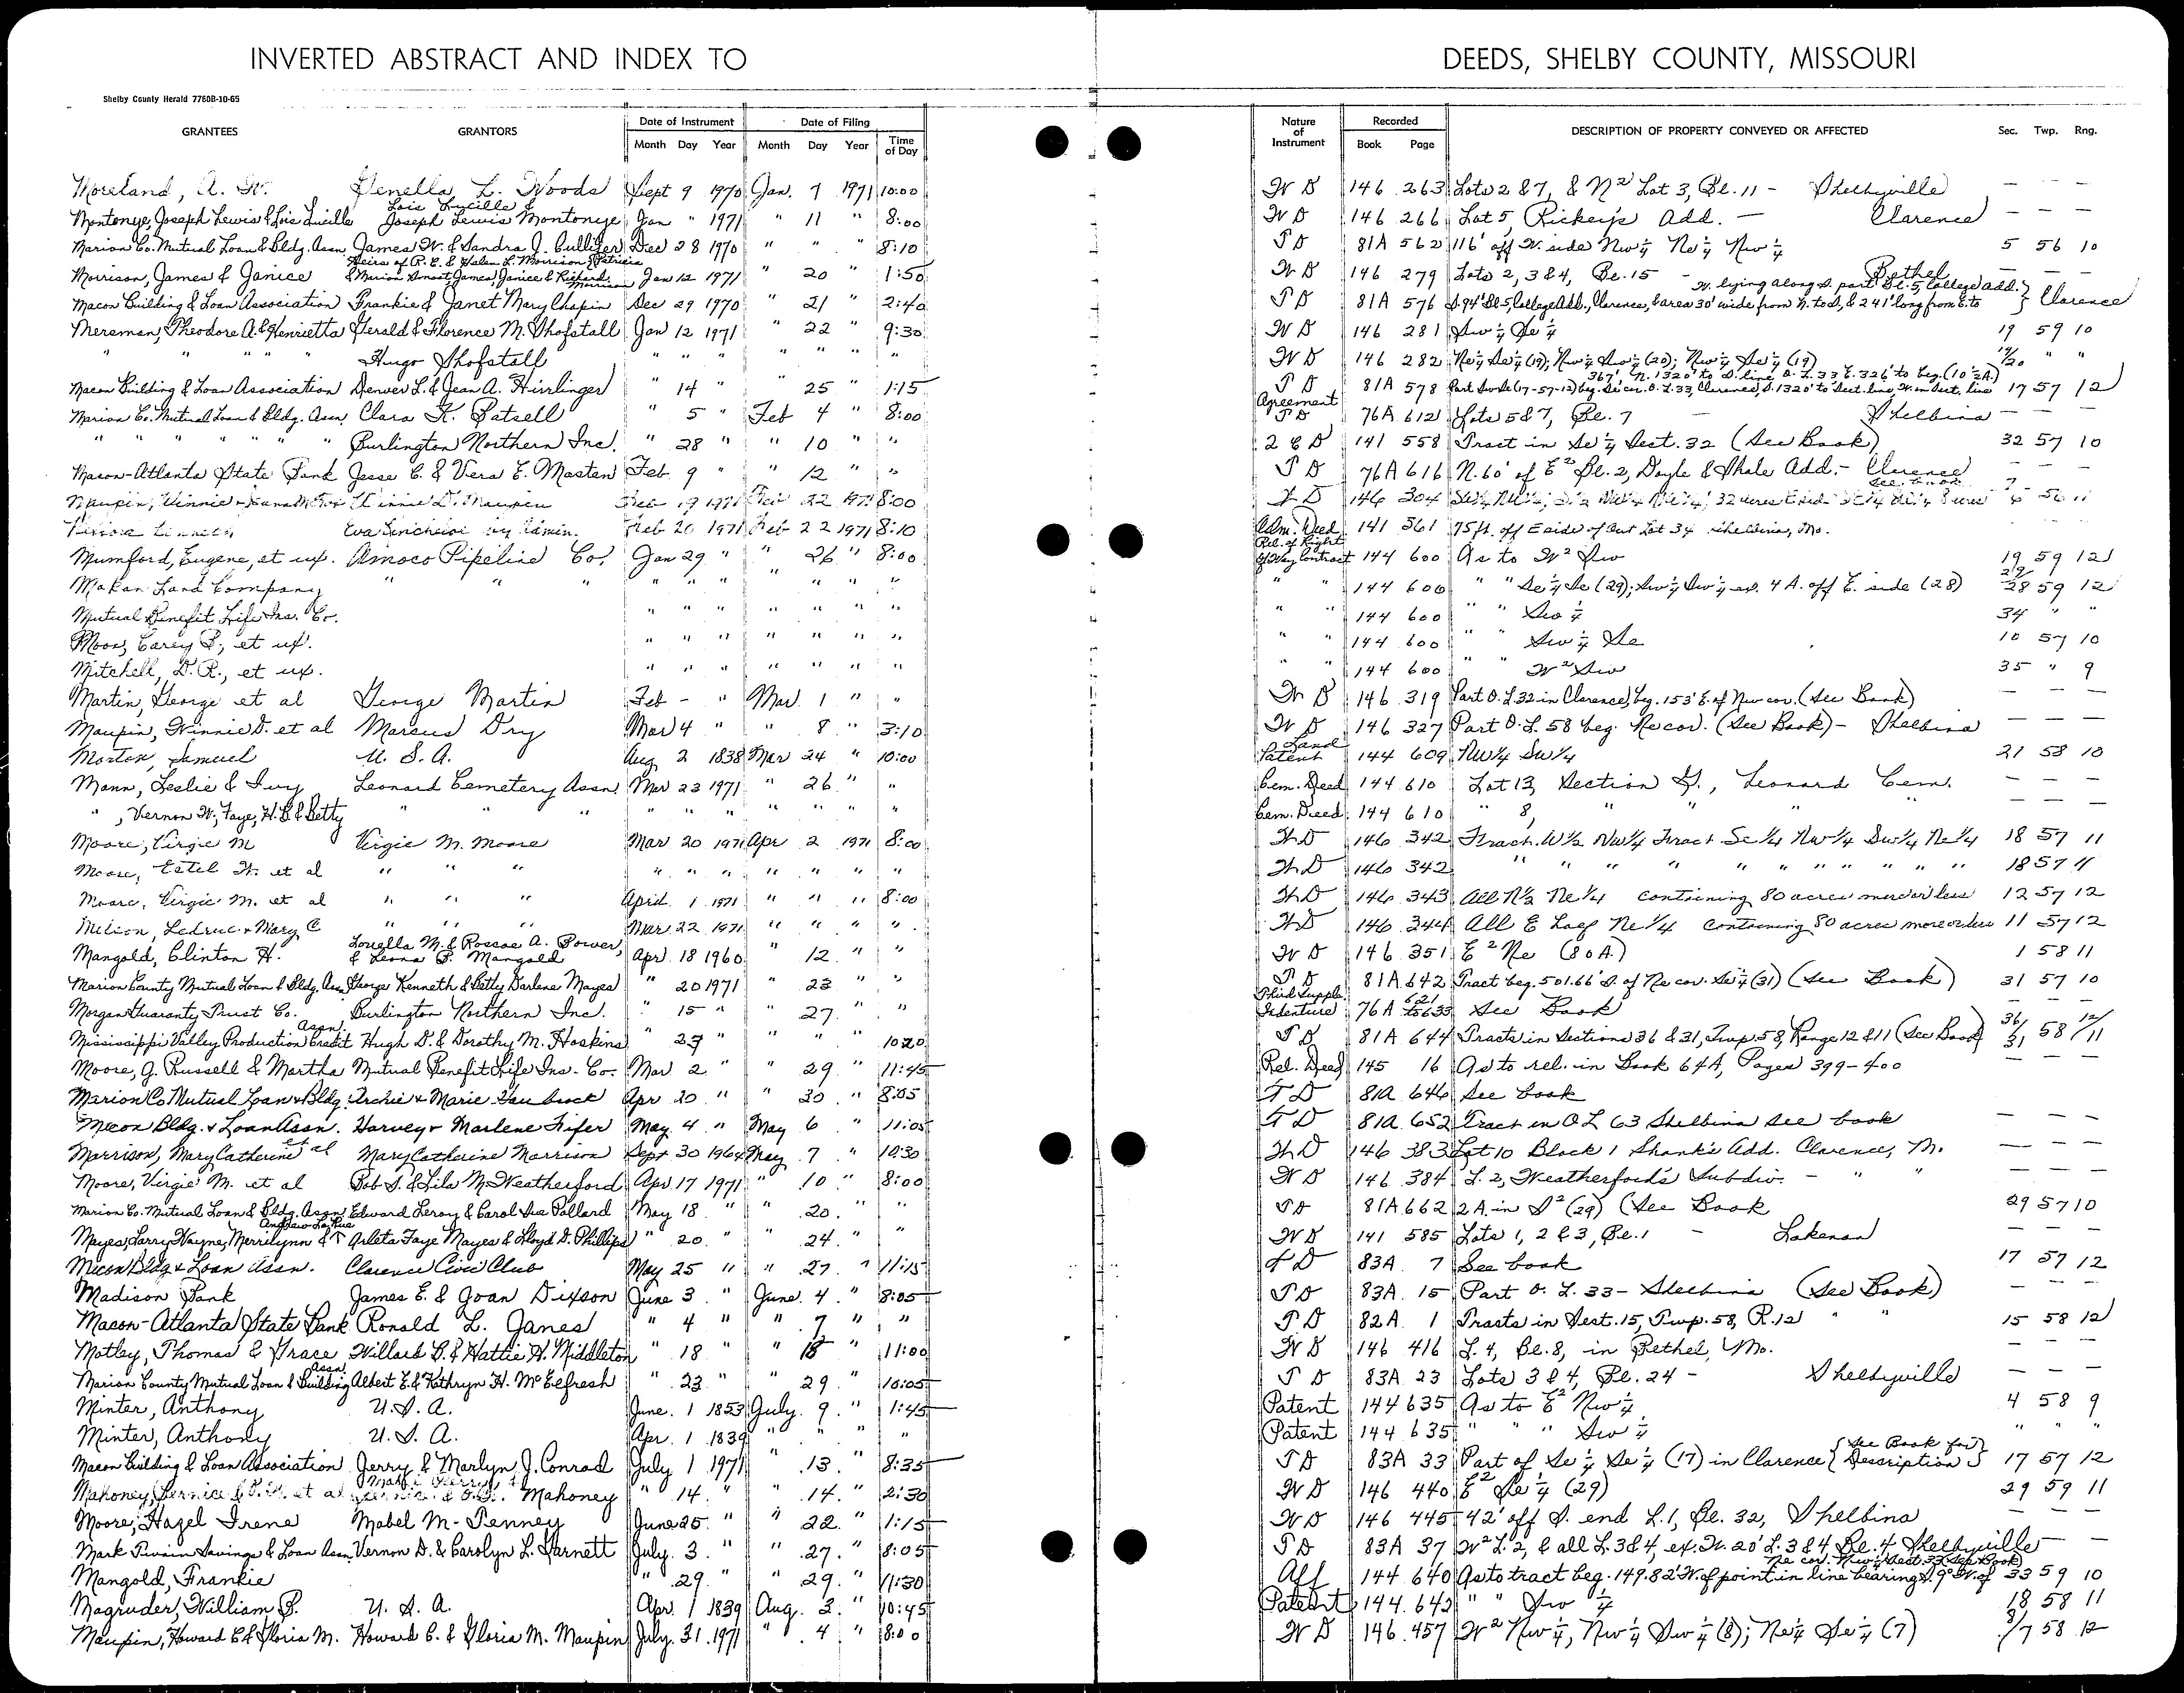 INVERTED ABSTRACT AND INDEX TO DEEDS, SHELBY COUNTY, MISSOURI
Shelby County Herald 7760B-10-65
GRANTEES GRANTORS Date of Instrument Date of Filing Nature of Instrument Recorded DESCRIPTION OF PROPERTY CONVEYED OR AFFECTED Sec. Twp. Rng.
Month Day Year Month Day Year Time of Day Book Page
Moreland, A. W. Genella L. Woods Sept 9 1970 Jan. 7 1971 10:00 W D 146 263 Lots 2 & 7, & N² Lot 3, Bl. 11 - Shelbyville — — —
Montonye, Joseph Lewis & Lois Lucille Lois Lucille & Joseph Lewis Montonye Jan " 1971 " 11 " 8:00 W D 146 266 Lot 5, Rickey's Add. — Clarence — — —
Marion Co. Mutual Loan & Bldg. Assn. James W. & Sandra J. Gullifer Dec 28 1970 " " " 8:10 T D 81A 562 116' off W. side Nw¼ Ne¼ Nw¼ 5 56 10
Morrison, James & Janice Heirs of R. C. & Helen L. Morrison, Patricia & Marion Smoot, James, Janice & Richard Morrison Jan 12 1971 " 20 " 1:50 W D 146 279 Lots 2, 3 & 4, Bl. 15 - Bethel — — —
Macon Building & Loan Association Frankie & Janet Mary Chapin Dec 29 1970 " 21 " 2:40 T D 81A 576 S. 94' Bl. 5, College Add., Clarence, & area 30' wide from N. to S, & 241' long from E. to W. lying along S. part Bl. 5 College Add. } Clarence
Mereman, Theodore A. & Henrietta Gerald & Florence M. Shofstall Jan 12 1971 " 22 " 9:30 W D 146 281 Sw¼ Se¼ 19 59 10
" " " " Hugo Shofstall " " " " " " " W D 146 282 Ne¼ Se¼ (19); Nw¼ Sw¼ (20); Nw¼ Se¼ (19) 19/20 " "
Macon Building & Loan Association Denver L. & Jean A. Hirrlinger " 14 " " 25 " 1:15 T D 81A 578 Part SwSe (17-57-12) beg. Se cor. O. L. 33, Clarence, S. 1320' to Sect. line, W. on Sect. line 367', N. 1320' to S. line O. L. 33 E. 326' to beg. (10½A) 17 57 12
Marion Co. Mutual Loan & Bldg. Assn. Clara K. Patsell " 5 " Feb 4 " 8:00 Agreement T D 76A 612 Lots 5 & 7, Bl. 7 — Shelbina — — —
" " " " " " Burlington Northern Inc. " 28 " " 10 " " 2 C D 141 558 Tract in Se¼ Sect. 32 (See Book) 32 57 10
Macon-Atlanta State Bank Jesse C. & Vera E. Masten Feb 9 " " 12 " " T D 76A 616 N. 60' of E² Bl. 2, Doyle & Shale Add. - Clarence — — —
Maupin, Winnie Winnie D. Maupin 19 1971 Feb 22 1971 8:00 W D 146 304 See book
Eva by Admin. Feb 20 1971 Feb 22 1971 8:10 Adm. Deed 141 561 75 ft. off E side of Out Lot 34 Shelbina, Mo.
Mumford, Eugene, et ux. Amoco Pipeline Co. Jan 29 " " 26 " 8:00 Rel. of Right of Way Contract 144 600 As to W² Sw 19 59 12
Makan Land Company " " " " " " " " " " " 144 600 " " Se¼ Se (29); Sw¼ Sw¼ ex. 4 A. off E. side (28) 29/28 59 12
Mutual Benefit Life Ins. Co. " " " " " " " " " 144 600 " " Sw¼ 34 " "
Moos, Carey B., et ux. " " " " " " " " " 144 600 " " Sw¼ Se 10 57 10
Mitchell, D. R., et ux. " " " " " " " " " 144 600 " " W² Sw 35 " 9
Martin, George et al George Martin Feb - " Mar. 1 " " W D 146 319 Part O. L. 32 in Clarence, beg. 153' E. of Nw cor. (See Book) — — —
Maupin, Winnie D. et al Marcus Dry Mar 4 " " 8 " 3:10 W D 146 327 Part O. L. 58 beg. Ne cor. (See Book) - Shelbina — — —
Morton, Samuel U. S. A. Aug 2 1838 Mar 24 " 10:00 Land Patent 144 609 NW¼ SW¼ 21 58 10
Mann, Leslie & Ivy Leonard Cemetery Assn. Mar 23 1971 " 26 " " Cem. Deed 144 610 Lot 13, Section G., Leonard Cem. — — —
", Vernon W., Faye, H. B. & Betty " " " " " " " " " " Cem. Deed 144 610 " 8, " " " " — — —
Moore, Virgie M Virgie M. Moore Mar 20 1971 Apr 2 1971 8:00 W D 146 342 Fract. W½ NW¼ Fract Se¼ NW¼ SW¼ Ne¼ 18 57 11
Moore, Estel W. et al " " " " " " " " " " W D 146 342 " " " " " " " " " 18 57 11
Moore, Virgie M. et al " " " April 1 1971 " " " 8:00 W D 146 343 All N½ Ne¼ containing 80 acres more or less 12 57 12
Melson, Ledrue & Mary C " " " " Mar. 22 1971 " " " " W D 146 344 All E half Ne¼ containing 80 acres more or less 11 57 12
Mangold, Clinton H. Louella M. & Roscoe A. Power, & Leona B. Mangold Apr. 18 1960 " 12 " " W D 146 351 E² Ne (80A) 1 58 11
Marion County Mutual Loan & Bldg. Assn George Kenneth & Betty Darlene Mayes " 20 1971 " 23 " " T D 81A 642 Tract beg. 501.66' S. of Ne cor. Se¼ (31) (See Book) 31 57 10
Morgan Guaranty Trust Co. Burlington Northern Inc. " 15 " " 27 " " Third Supple. Indenture 76A 621 to 633 See Book — — —
Mississippi Valley Production Credit Assn. Hugh D. & Dorothy M. Hoskins " 27 " " " " 10:20 T D 81A 644 Tracts in Sections 36 & 31, Twp. 58, Range 12 & 11 (See Book) 36/31 58 12/11
Moore, J. Russell & Martha Mutual Benefit Life Ins. Co. Mar 2 " " 29 " 11:45 Rel. Deed 145 16 As to rel. in Book 64A, Pages 399-400 — — —
Marion Co Mutual Loan & Bldg. Archie & Marie Apr 20 " " 30 " 8:05 T D 81A 646 See book
Macon Bldg. & Loan Assn. Harvey & Marlene Fifer May 4 " May 6 " 11:05 T D 81A 652 Tract in OL 63 Shelbina see book — — —
Morrison, Mary Catherine et al Mary Catherine Morrison Sept 30 1964 May 7 " 10:30 W D 146 383 Lot 10 Block 1 Shank's Add. Clarence, M. — — —
Moore, Virgie M. et al Bob S. & Lila M. Weatherford Apr 17 1971 " 10 " 8:00 W D 146 384 L. 2, Weatherford's Subdiv. - " " — — —
Marion Co. Mutual Loan & Bldg. Assn Edward Leroy & Carol Sue Pollard May 18 " " 20 " " T D 81A 662 2 A. in S² (29) (See Book 29 57 10
Mayes, Larry Wayne, Merrilynn & Andrew LaRue Arleta Faye Mayes & Lloyd D. Phillips " 20 " " 24 " " W D 141 585 Lots 1, 2 & 3, Bl. 1 - Lakenan — — —
Macon Bldg & Loan Assn. Clarence Civic Club May 25 " " 27 " 11:15 T D 83A 7 See book 17 57 12
Madison Bank James E. & Joan Dixson June 3 " June 4 " 8:05 T D 83A 15 Part O. L. 33 - Shelbina (See Book) — — —
Macon-Atlanta State Bank Ronald L. Janes " 4 " " 7 " " T D 82A 1 Tracts in Sect. 15, Twp. 58, R. 12 " " 15 58 12
Motley, Thomas & Grace Willard B. & Hattie H. Middleton " 18 " " 18 " 11:00 W D 146 416 L. 4, Bl. 8, in Bethel, Mo. — — —
Marion County Mutual Loan & Building Assn. Albert E. & Kathryn H. McElfresh " 23 " " 29 " 10:05 T D 83A 23 Lots 3 & 4, Bl. 24 - Shelbyville — — —
Minter, Anthony U. S. A. June 1 1853 July 9 " 1:45 Patent 144 635 As to E² Nw¼ 4 58 9
Minter, Anthony U. S. A. Apr. 1 1839 " " " " Patent 144 635 " " Sw¼ " " "
Macon Building & Loan Association Jerry & Marlyn J. Conrad July 1 1971 " 13 " 8:35 T D 83A 33 Part of Se¼ Se¼ (17) in Clarence {See Book for Description} 17 57 12
Mahoney, Bernice & et al Mahoney " 14 " " 14 " 2:30 W D 146 440 E² Se¼ (29) 29 59 11
Moore, Hazel Irene Mabel M. Penney June 25 " " 22 " 1:15 W D 146 445 42' off S. end L. 1, Bl. 32, Shelbina — — —
Mark Twain Savings & Loan Assn. Vernon D. & Carolyn L. Garnett July 3 " " 27 " 8:05 T D 83A 37 W² L. 2, & all L. 3 & 4, ex. W. 20' L. 3 & 4, Bl. 4, Shelbyville — —
Mangold, Frankie " 29 " " 29 " 11:30 Aff 144 640 As to tract beg. 149.82' W. of point in line bearing S. 9° W. of Ne cor. Nw¼ Sect. 33 (See Book) 33 59 10
Magruder, William B. U. S. A. Apr. 1 1839 Aug. 3 " 10:45 Patent 144 642 " " Sw¼ 18 58 11
Maupin, Howard C. & Gloria M. Howard C. & Gloria M. Maupin July 31 1971 " 4 " 8:00 W D 146 457 W² Nw¼, Nw¼ Sw¼ (8); Ne¼ Se¼ (7) 8/7 58 12